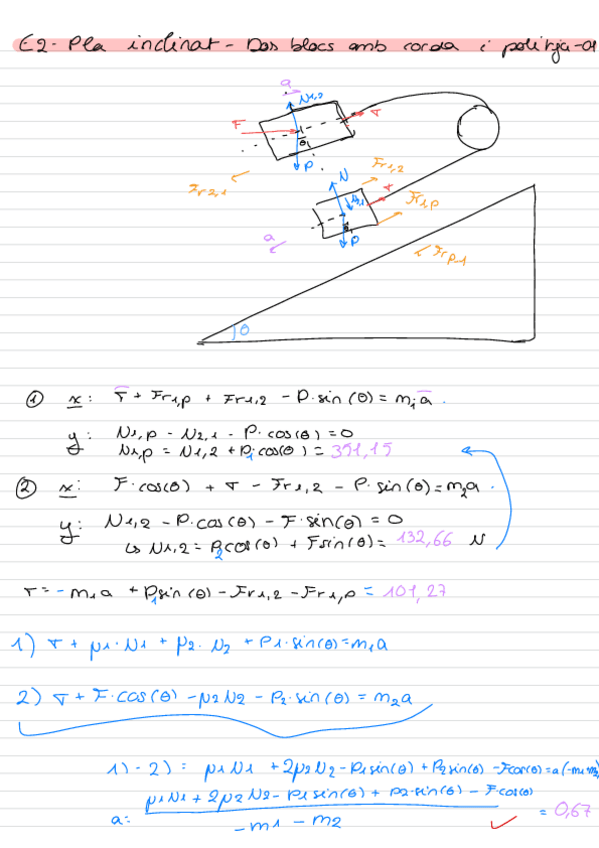 E2- Pla inclinat - Dos blocs amb corda i politja-
a
N1,2
F
T
θ
P
Fr2,1
N
Fr1,2
T
Fr1,p
a
P
Frp,1
θ
① x: T + Fr1,p + Fr1,2 - P·sin(θ) = m1a.
y: N1,p - N2,1 - P·cos(θ) = 0
N1,p = N1,2 + P1cos(θ) = 351,15
② x: F·cos(θ) + T - Fr1,2 - P·sin(θ) = m2a.
y: N1,2 - P·cos(θ) - F·sin(θ) = 0
↳ N1,2 = P2cos(θ) + Fsin(θ) = 132,66 N
T = - m1a + P1sin(θ) - Fr1,2 - Fr1,p = 101,27
1) T + μ1·N1 + μ2·N2 + P1·sin(θ) = m1a
2) T + F·cos(θ) - μ2N2 - P2·sin(θ) = m2a
1) - 2) = μ1N1 + 2μ2N2 - P1sin(θ) + P2sin(θ) - Fcos(θ) = a(-m1-m2)
μ1N1 + 2μ2N2 - P1sin(θ) + P2·sin(θ) - F·cos(θ)
a = = 0,67
-m1 - m2